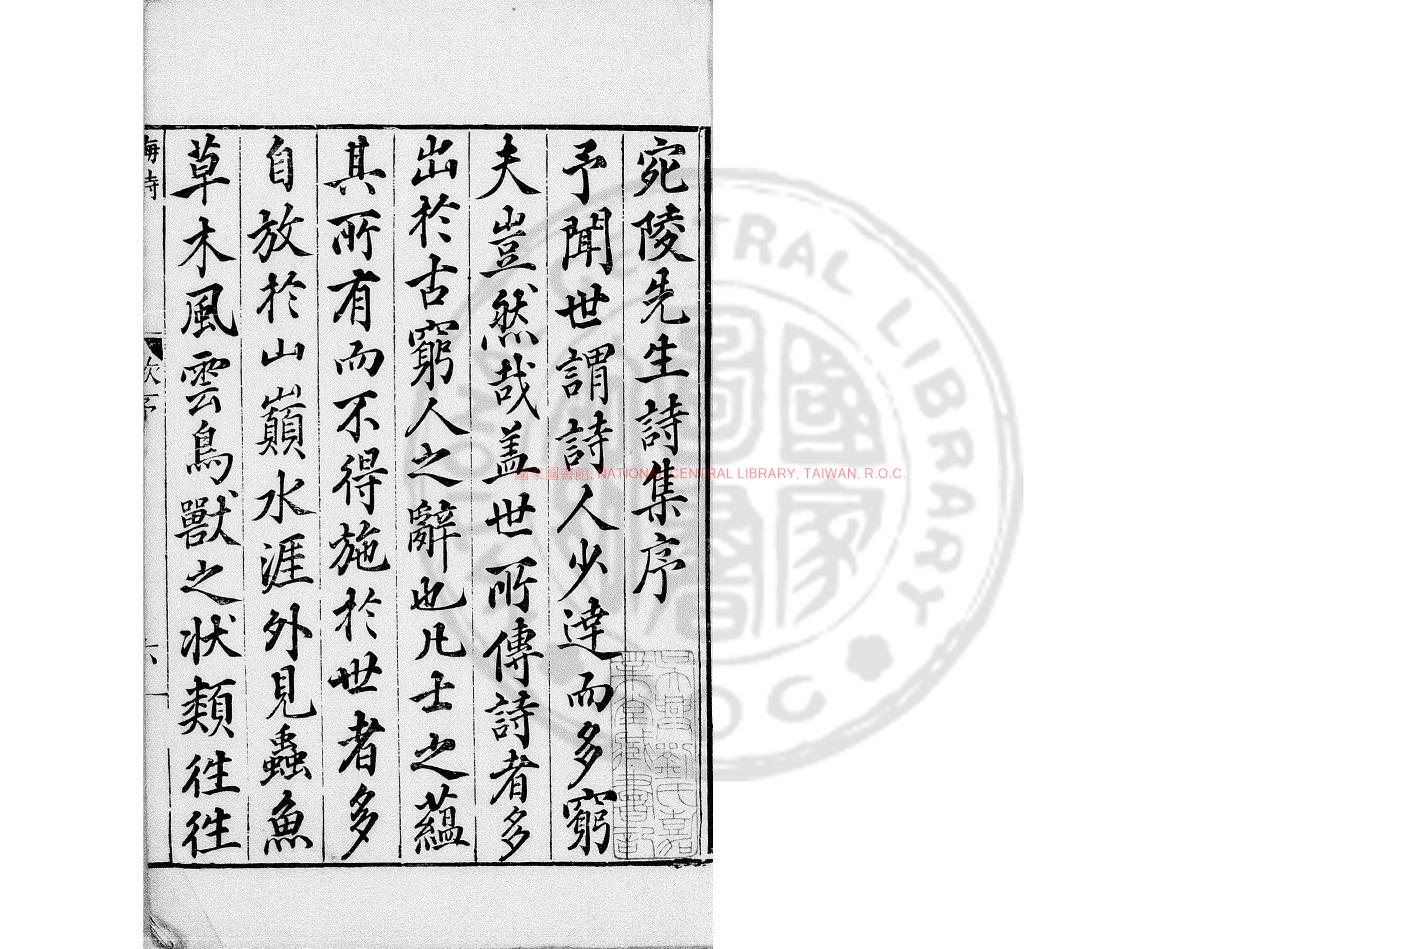 宛陵先生詩集序
予聞世謂詩人少達而多窮
夫豈然哉盖世所傳詩者多
出於古窮人之辭也凡士之蘊
其所有而不得施於世者多
自放於山巔水涯外見蟲魚
草木風雲鳥獸之狀類徃徃
國家圖書館, NATIONAL CENTRAL LIBRARY, TAIWAN, R.O.C.